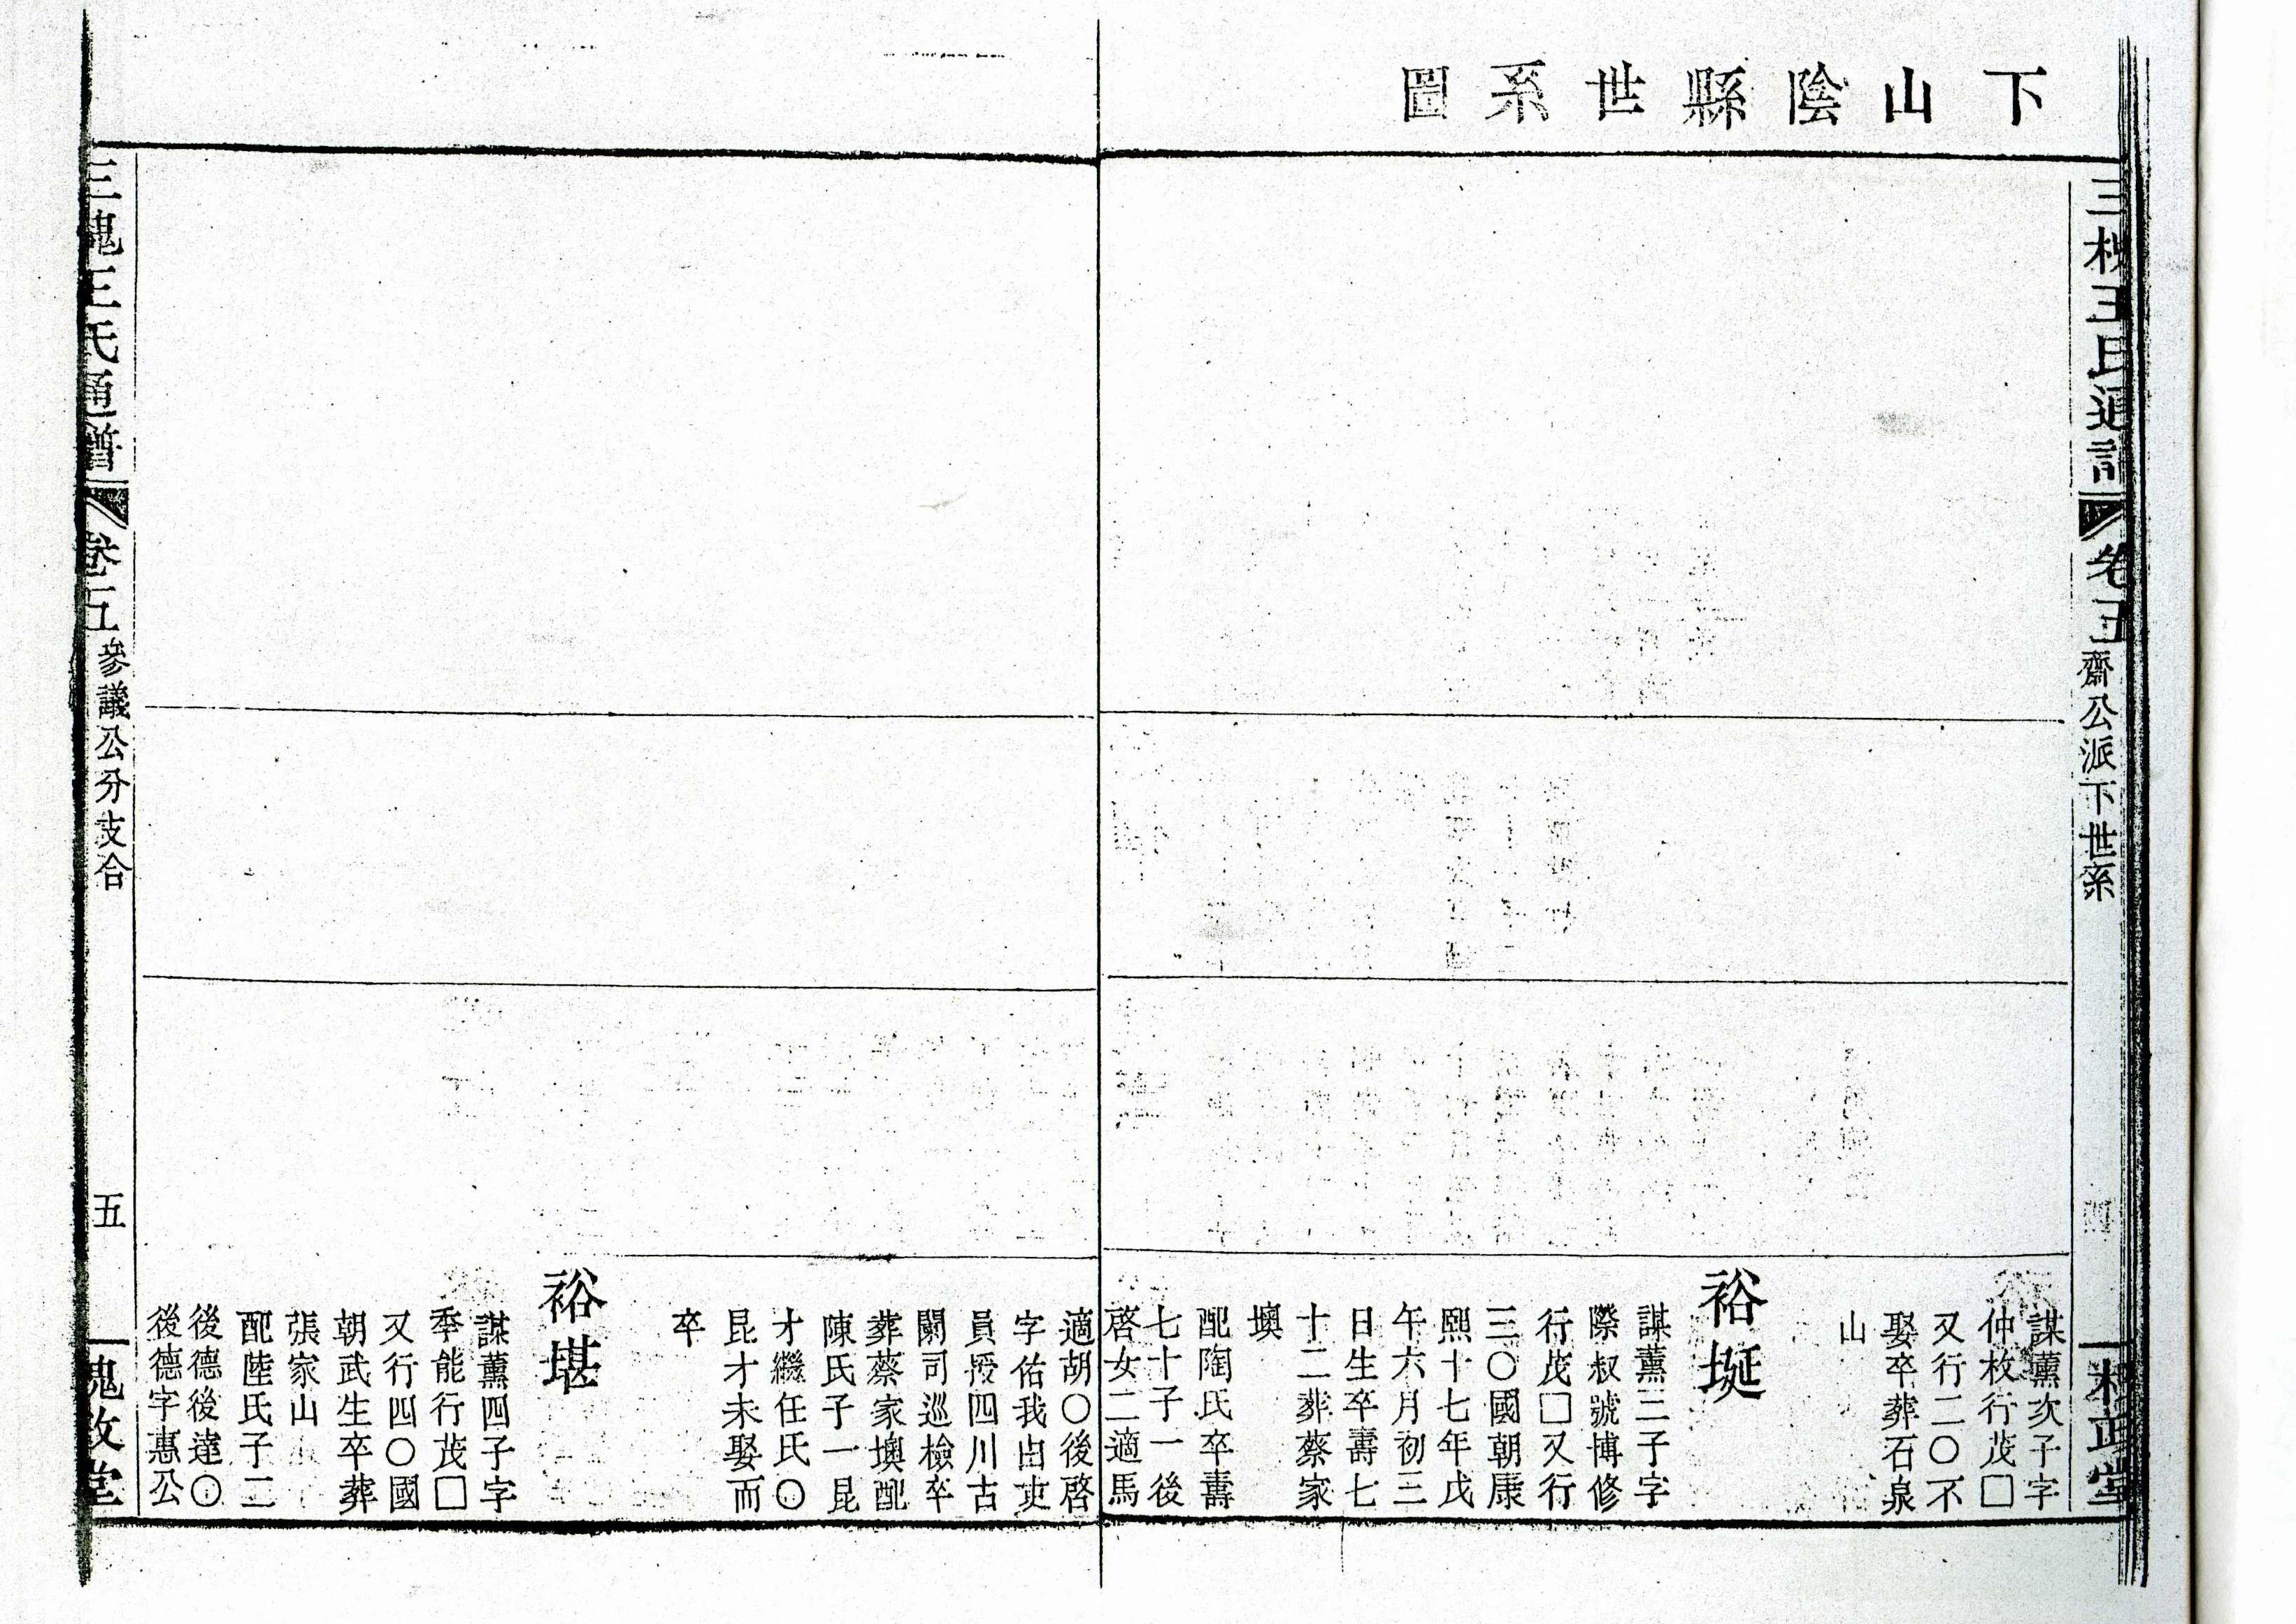 下山陰縣世系圖
三槐王氏通譜
卷五
齋公派下世系
四
謀薰次子字
仲枚行茂□
又行二〇不
娶卒葬石泉
山
裕埏
謀薰三子字
際叔號博修
行茂□又行
三〇國朝康
熙十七年戊
午六月初三
日生卒壽七
十二葬蔡家
墺
配陶氏卒壽
七十子一後
啓女二適馬
適胡〇後啓
字佑我由吏
員授四川古
關司巡檢卒
葬蔡家墺配
陳氏子一昆
才繼任氏〇
昆才未娶而
卒
裕堪
謀薰四子字
季能行茂□
又行四〇國
朝武生卒葬
張家山
配陸氏子二
後德後達〇
後德字惠公
三槐王氏通譜
卷五
參議公分支合
五
槐政堂